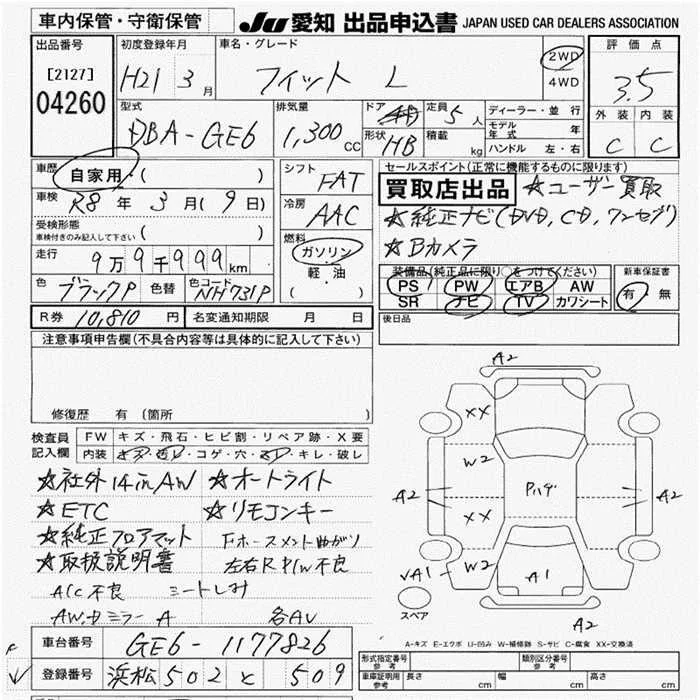 車内保管・守衛保管
JU 愛知 出品申込書 JAPAN USED CAR DEALERS ASSOCIATION
出品番号
[2127]
04260
初度登録年月
H21 3月
車名・グレード
フィット L
2WD
4WD
評価点
3.5
外装 内装
C C
型式
DBA-GE6
排気量
1,300 CC
ドア
形状 HB
定員 5人
積載 kg
ディーラー・並行
モデル年式 年
ハンドル 左・右
車歴
自家用・( )
車検
R8年 3月(9日)
受検形態
車検付きのみ記入して下さい ( )
走行
9万9千999km
色 ブラックP 色替 色コード NH731P
シフト
FAT
冷房
AAC
燃料
ガソリン
軽・油
( )
セールスポイント(正常に機能するものに限ります)
買取店出品 ☆ユーザー買取
☆純正ナビ(DVD, CD, ワンセグ)
☆Bカメラ
装備品(純正品に限り〇をつけてください)
PS PW エアB AW
SR ナビ TV カワシート
新車保証書
有・無
R券 10,810円
名変通知期限 月 日
後日品
注意事項申告欄(不具合内容等は具体的に記入して下さい)
修復歴 有(箇所 )
検査員記入欄
FW キズ・飛石・ヒビ割・リペア跡・X要
内装 キズ・ヨゴレ・コゲ・穴・スレ・キレ・破レ
☆社外14inAW ☆オートライト
☆ETC ☆リモコンキー
☆純正フロアマット Fホースメント曲がり
☆取扱説明書 左右R P/W不良
A/C不良 シートしみ
AW,ドミラーA 各AU
車台番号 GE6-1177826
登録番号 浜松 502 と 509
A2
XX
W2
A2
Pハゲ
A2
XX
VA1
W2
A1
スペア
A2
A-キズ E-エクボ U-凹み W-補修跡 S-サビ C-腐食 XX-交換済
形式指定番号 参考
類別区分番号 参考
車庫証明用 参考 長さ cm 幅 cm 高さ cm